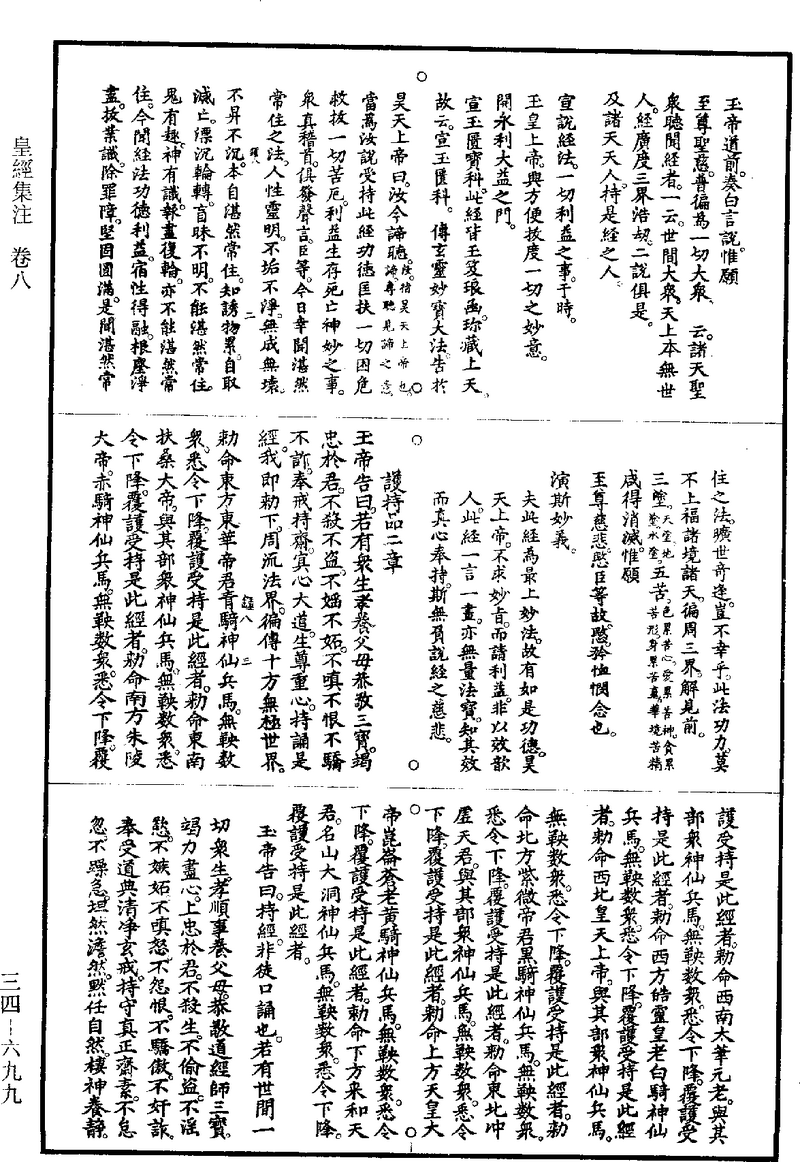 皇經集注 卷八
玉帝道前。奏白言說。惟願
至尊聖慈。普徧為一切大衆 云。諸天聖
衆聽聞經者。一云。世間大衆。天上本無世
人。經廣度三界浩劫。二說俱是。
及諸天天人。持是經之人。
宣說經法。一切利益之事。于時。
玉皇上帝與方便拔度一切之妙意。
開永利大益之門。
宣玉匱寶科。此經皆玉笈琅函。珍藏上天。
故云。宣玉匱科。 傳玄靈妙寶大法。告於
昊天上帝曰。汝今諦聽。
當為汝說受持此經功德匡扶一切困危
救拔一切苦厄。利益生存死亡神妙之事。
衆真稽首。俱發聲言。臣等。今日幸聞湛然
常住之法。人性靈明。不垢不淨。無成無壞。
二
不昇不沉。本自湛然常住。知誘物累。自取
滅亡。漂沉輪轉。盲昧不明。不能湛然常住。
鬼有趣。神有識。報盡復輪。亦不能湛然常
住。今聞經法功德利益。宿性得融。根塵淨
盡。拔業識。除罪障。堅固圓滿。是聞湛然常
住之法。曠世奇逢。豈不幸乎。此法功力。莫
不上福諸境諸天。徧周三界。解見前。
三塗。五苦。
咸得消滅。惟願
至尊慈悲。愍臣等故。愍矜恤憫念也。
演斯妙義。
夫此經為最上妙法。故有如是功德。昊
天上帝。不求妙旨。而請利益。非以效歆
人。此經一言一畫。亦無量法寶。知其效
而真心奉持。斯無負說經之慈悲。
護持品二章
玉帝告曰。若有衆生孝養父母。恭敬三寶。竭
忠於君。不殺不盜。不婬不妬。不嗔不恨。不驕
不詐。奉戒持齋。寘心大道。生尊重心。持誦是
經。我即勅下。周流法界。徧傳十方無極世界。
三
勅命東方東華帝君。青騎神仙兵馬。無鞅數
衆。悉令下降。覆護受持是此經者。勅命東南
扶桑大帝。與其部衆神仙兵馬。無鞅數衆。悉
令下降。覆護受持是此經者。勅命南方朱陵
大帝。赤騎神仙兵馬。無鞅數衆。悉令下降。覆
護受持是此經者。勅命西南太華元老。與其
部衆神仙兵馬。無鞅數衆。悉令下降。覆護受
持是此經者。勅命西方皓靈皇老。白騎神仙
兵馬。無鞅數衆。悉令下降。覆護受持是此經
者。勅命西北皇天上帝。與其部衆神仙兵馬。
無鞅數衆。悉令下降。覆護受持是此經者。勅
命北方紫微帝君。黑騎神仙兵馬。無鞅數衆。
悉令下降。覆護受持是此經者。勅命東北冲
虛天君。與其部衆神仙兵馬。無鞅數衆。悉令
下降。覆護受持是此經者。勅命上方天皇大
帝。崑崙蒼老。黃騎神仙兵馬。無鞅數衆。悉令
下降。覆護受持是此經者。勅命下方来和天
君。名山大洞神仙兵馬。無鞅數衆。悉令下降。
覆護受持是此經者。
玉帝告曰。持經非徒口誦也。若有世間一
切衆生。孝順事養父母。恭敬道經師三寶。
竭力盡心。上忠於君。不殺生。不偷盜。不淫
慾。不嫉妬。不嗔怒。不怨恨。不驕傲。不奸詐。
奉受道典。清凈玄戒。持守真正齋素。不怠
忽。不躁急。坦然澹然。默任自然。棲神養靜。
三四—六九九